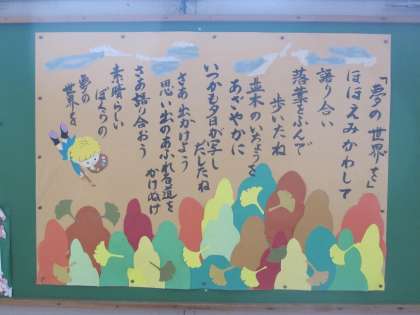 「夢の世界を」
ほほえみかわして
語り合い
落葉をふんで
歩いたね
並木のいちょうを
あざやかに
いつかも夕日が写し
だしたね
さあ出かけよう
思い出のあふれる道を
かけぬけ
さあ語り合おう
素晴らしい
ぼくらの
夢の
世界を